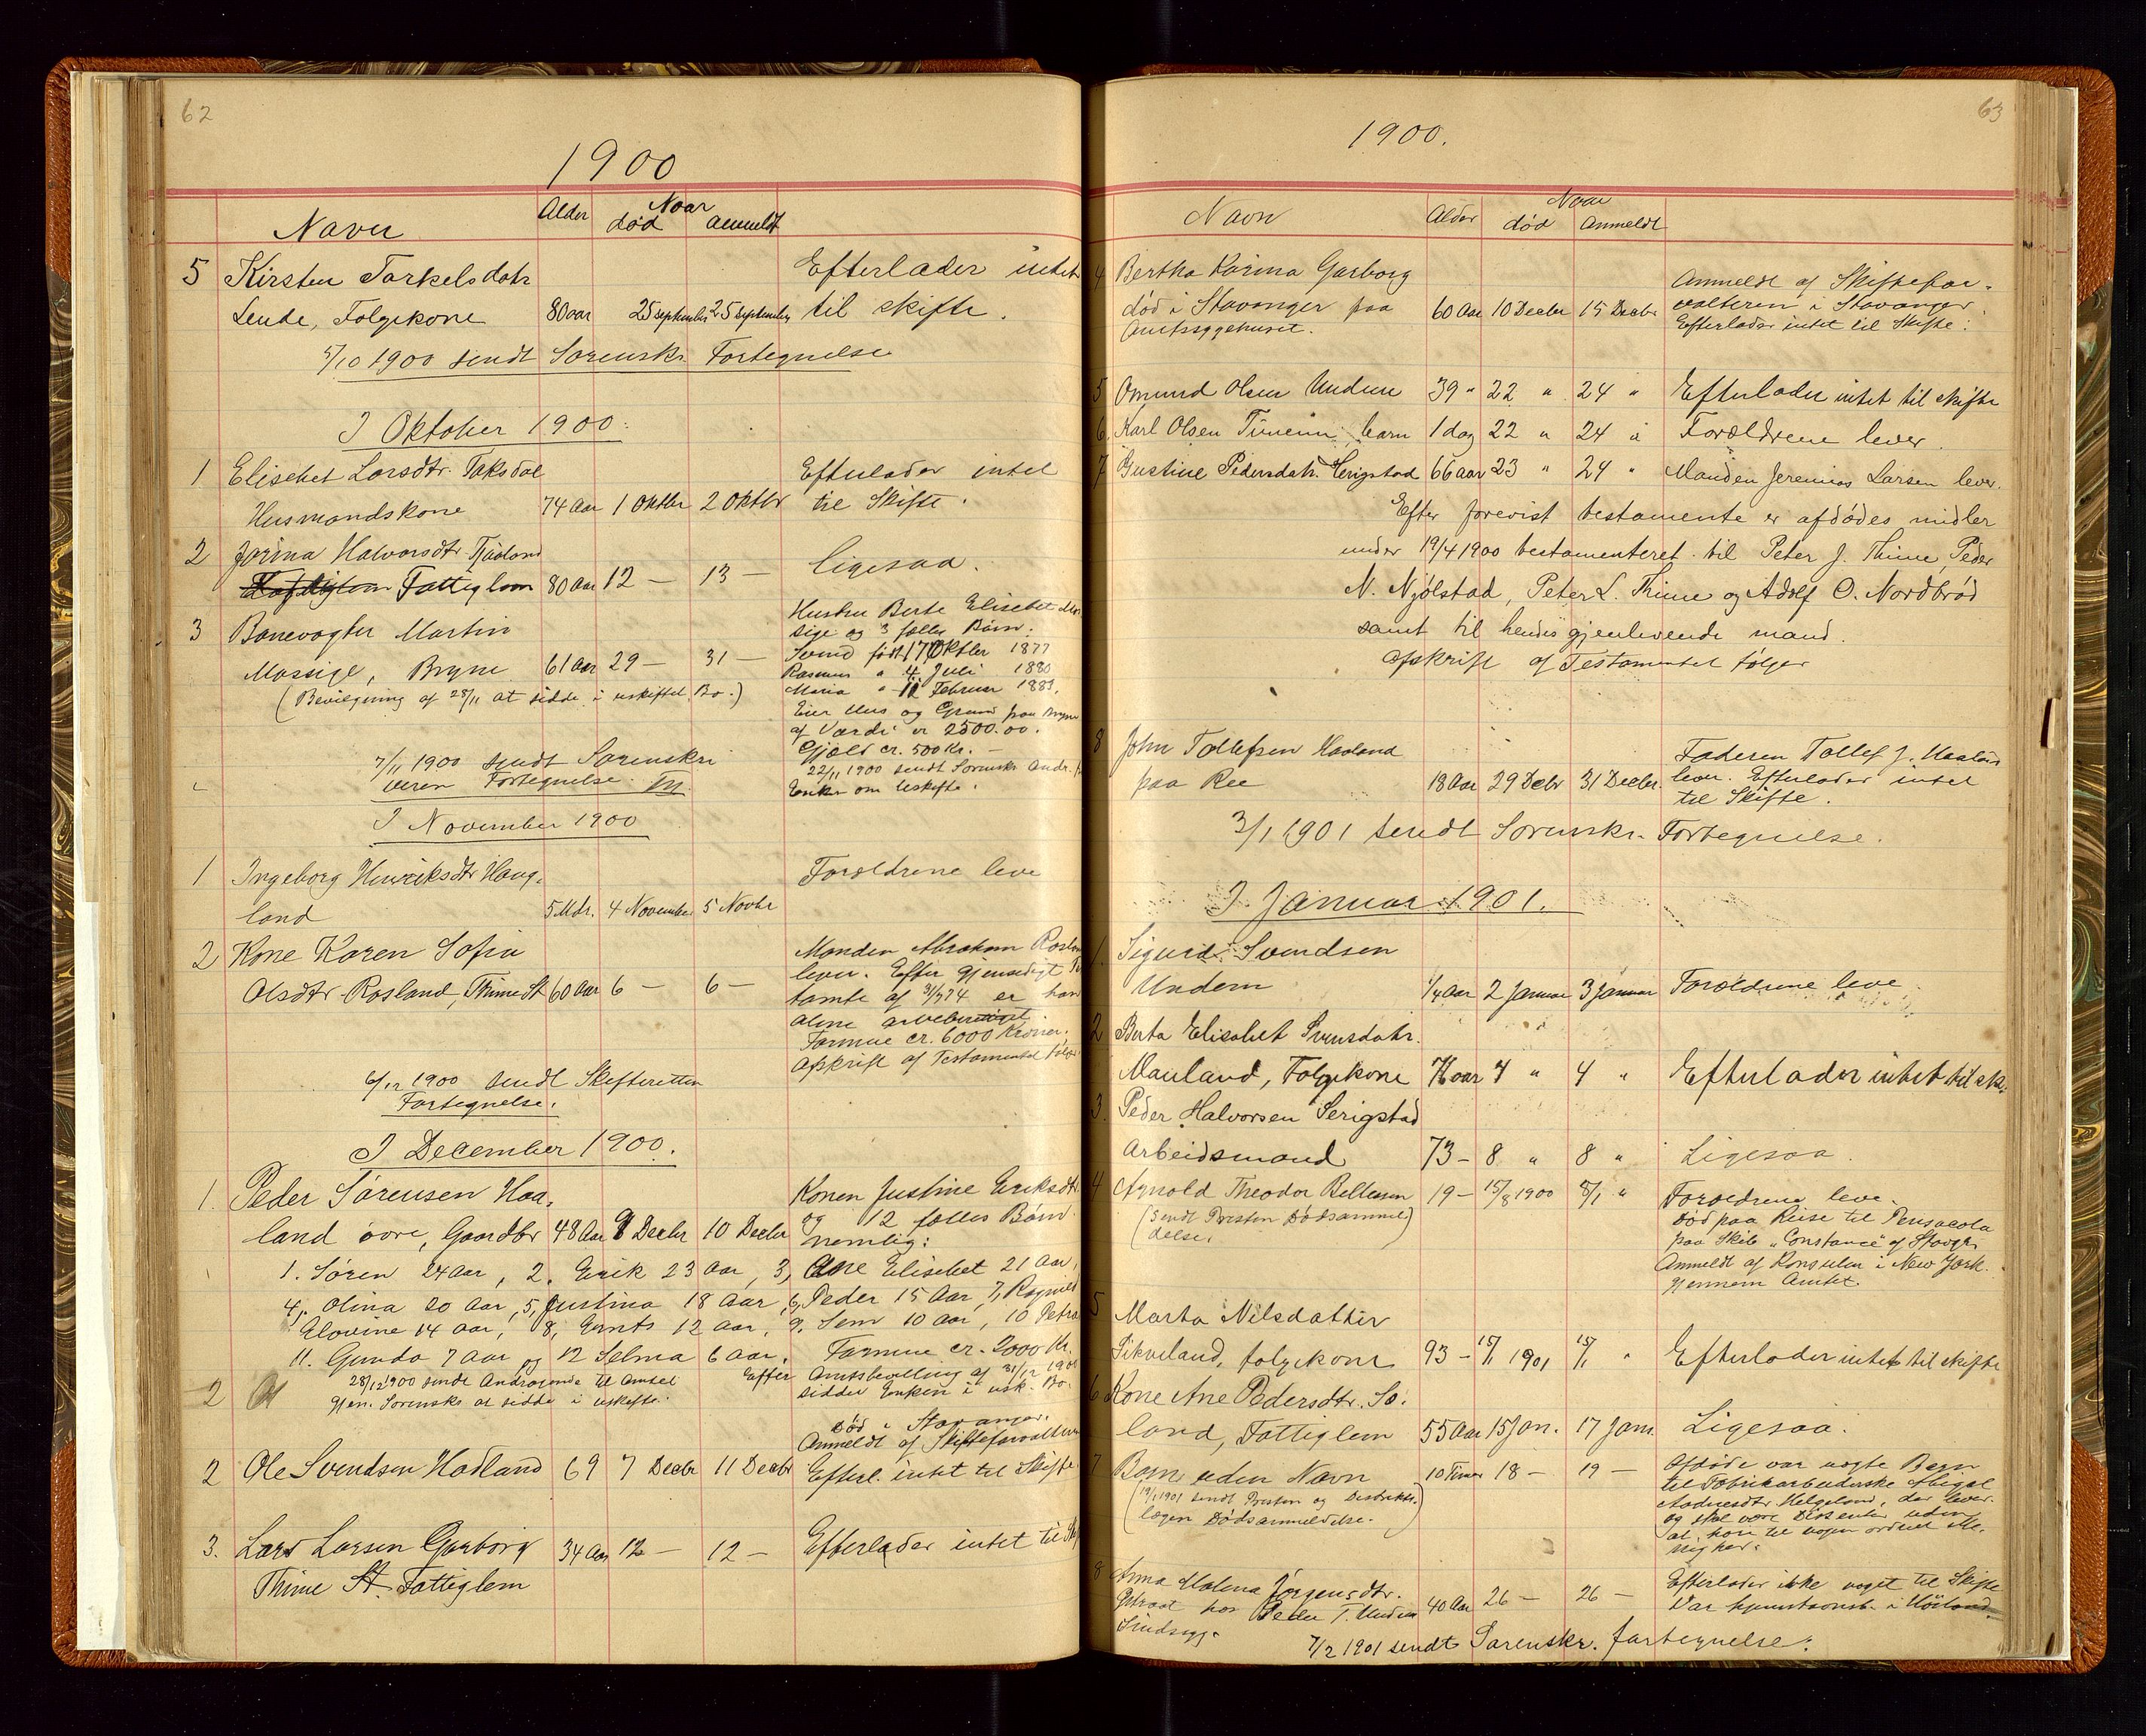 62
1900
Navn Alder Naar død anmeldt
5 Kirsten Torkelsdatr Efterlader intet
Lende, Folgekone 80 aar 25 september 25 september til skifte.
5/10 1900 sendt Sorenskr Fortegnelse
I Oktober 1900.
1 Elisebet Larsdtr. Taksdal Efterlader intet
Husmandskone 74 Aar 1 Oktbr 2 Oktbr til Skifte.
2 Jorina Halvorsdtr Tjaaland ligesaa.
Fattiglem 80 Aar 12 — 13 —
3 Banevogter Martin Hustru Berte Elisebet
sige og 3 fælles Børn:
Massige, Bryne 61 Aar 29 — 31 — Svend født 17 Oktbr 1877
Rasmus " 4 Juli 1880
(Bevilgning af 28/11 at sidde i uskiftet Bo.) Maria " 11 Februar 1883.
Eier Hus og Grund paa Bryne
af Værdi cr 2500.00.
Gjæld cr. 500 Kr. —
7/11 1900 sendt Sorenskri 22/11 1900 sendt Sorenskr Andr. f
veren Fortegnelse. Enken om Uskifte.
I November 1900
1 Ingeborg Henriksdtr Haug- Forældrene leve
land 5 Mdr. 4 November 5 Novbr
2 Kone Karen Sofia Manden Abraham Rosland
lever. Efter gjensidigt Te
Olsdtr Rosland, Thime St 60 Aar 6 — 6 — tamte af 31/3 74 er han
alene arveberettiget
Formue cr. 6000 Kroner.
Afskrift af Testamentet følger
6/12 1900 sendt Skifteretten
Fortegnelse.
I December 1900.
1. Peder Sørensen Haa- Konen Justine Eriksdtr
land øvre, Gaardbr 48 Aar 9 Decbr 10 Decbr og 12 fælles Børn
nemlig:
1. Søren 24 aar, 2. Erik 23 aar, 3, Ane Elisebet 21 aar,
4, Olina 20 aar, 5, Justina 18 aar 6, Peder 15 Aar, 7, Ragnild
Elovine 14 aar, 8, Ernts 12 aar, 9. Sem 10 aar, 10 Petra
11. Gunda 7 Aar og 12 Selma 6 aar. Formue cr. 2000 Kr.
28/12 1900 sendt Andragende til Amtet Efter Amtsbevilling af 31/12 1900
2 gjen. Sorenskr at sidde i uskifte. sidder Enken i usk. Bo.
Død i Stavanger.
Anmeldt af Skifteforvalteren
2 Ole Svendsen Hadland 69 7 Decbr 11 Decbr Efterl. intet til Skifte
3. Lars Larsen Garborg 34 Aar 12 — 12 — Efterlader intet til
Thime St. Fattiglem
63
1900.
Navn Alder Naar død Anmeldt
4 Bertha Karina Garborg Anmeldt af Skiftefor-
død i Stavanger paa 60 Aar 10 Decbr 15 Decbr valteren i Stavanger.
Amtssygehuset. Efterlader intet til Skifte.
5 Omund Olsen Undem 39 " 22 " 24 " Efterlader intet til skifte
6. Karl Olsen Tunheim, barn 1 dag 22 " 24 " Forældrene lever.
7 Gustine Pedersdatr. Serigstad 66 aar 23 " 24 " Manden Jeremias Larsen lever.
Efter forevist testamente er afdødes midler
under 19/4 1900 testamenteret til Peter J. Thime, Peder
N. Njølstad, Peter L. Thime og Adolf O. Nordbrød
samt til hendes gjenlevende mand.
Afskrift af Testamentet følger
8 John Tollefsen Haaland Faderen Tollef J. Haaland
paa Ree 18 Aar 29 Decbr 31 Decbr. lever. Efterlader intet
til Skifte.
3/1 1901 sendt Sorenskr. Fortegnelse.
I Januar 1901.
1. Sigurd Svendsen
Undem 1/4 Aar 2 Januar 3 Januar Forældrene leve
2 Berta Elisabet Svensdatr.
Mauland, Folgekone 76 aar 4 " 4 " Efterlader intet til sk.
3. Peder Halvorsen Serigstad
Arbeidsmand 73 — 8 " 8 " Ligesaa.
4 Arnold Theodor Rellesen 19 — 15/8 1900 8/1 " Forældrene leve.
(Sendt Presten Dødsanmel- Død paa Reise til Pensacola
delse.) paa Skib "Constance" af Stavgr.
Anmeldt af Konsulen i New York
gjennem Amtet.
5 Marta Nilsdatter
Sikveland, folgekone 93 — 15/1 1901 15/1 " Efterlader intet til skifte
6 Kone Ane Pedersdtr. So-
land, Fattiglem 55 Aar 15 Jan. 17 Jan. Ligesaa.
7 Barn uden Navn 10 Timer 18 — 19 — Afdøde var uægte Barn
(19/1 1901 sendt Presten og Distrikts- til Fabrikarbeiderske Abigael
lægen Dødsanmeldelse.) Aadnesdtr Helgeland, der lever
og skal være Dissenter uden
at hun til nogen ordnet Me-
nighed.
8 Anna Malena Jørgensdtr. Efterlader ikke noget til Skifte
hos Peder T. Undem 40 Aar 26 — 26 — Var hjemstavnsb. i Høiland.
Sindssyg.
7/2 1901 sendt Sorenskr. fortegnelse.